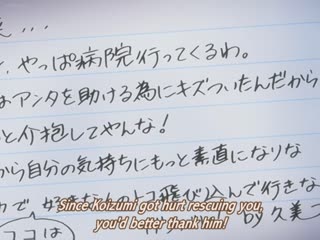 、やっぱ病院行ってくるわ。
アンタを助ける為にキズついたんだから
と介抱してやんな！
から自分の気持ちにもっと素直になりな
Since Koizumi got hurt rescuing you,
you'd better thank him!
飛び込んで行きな
ココは
久美